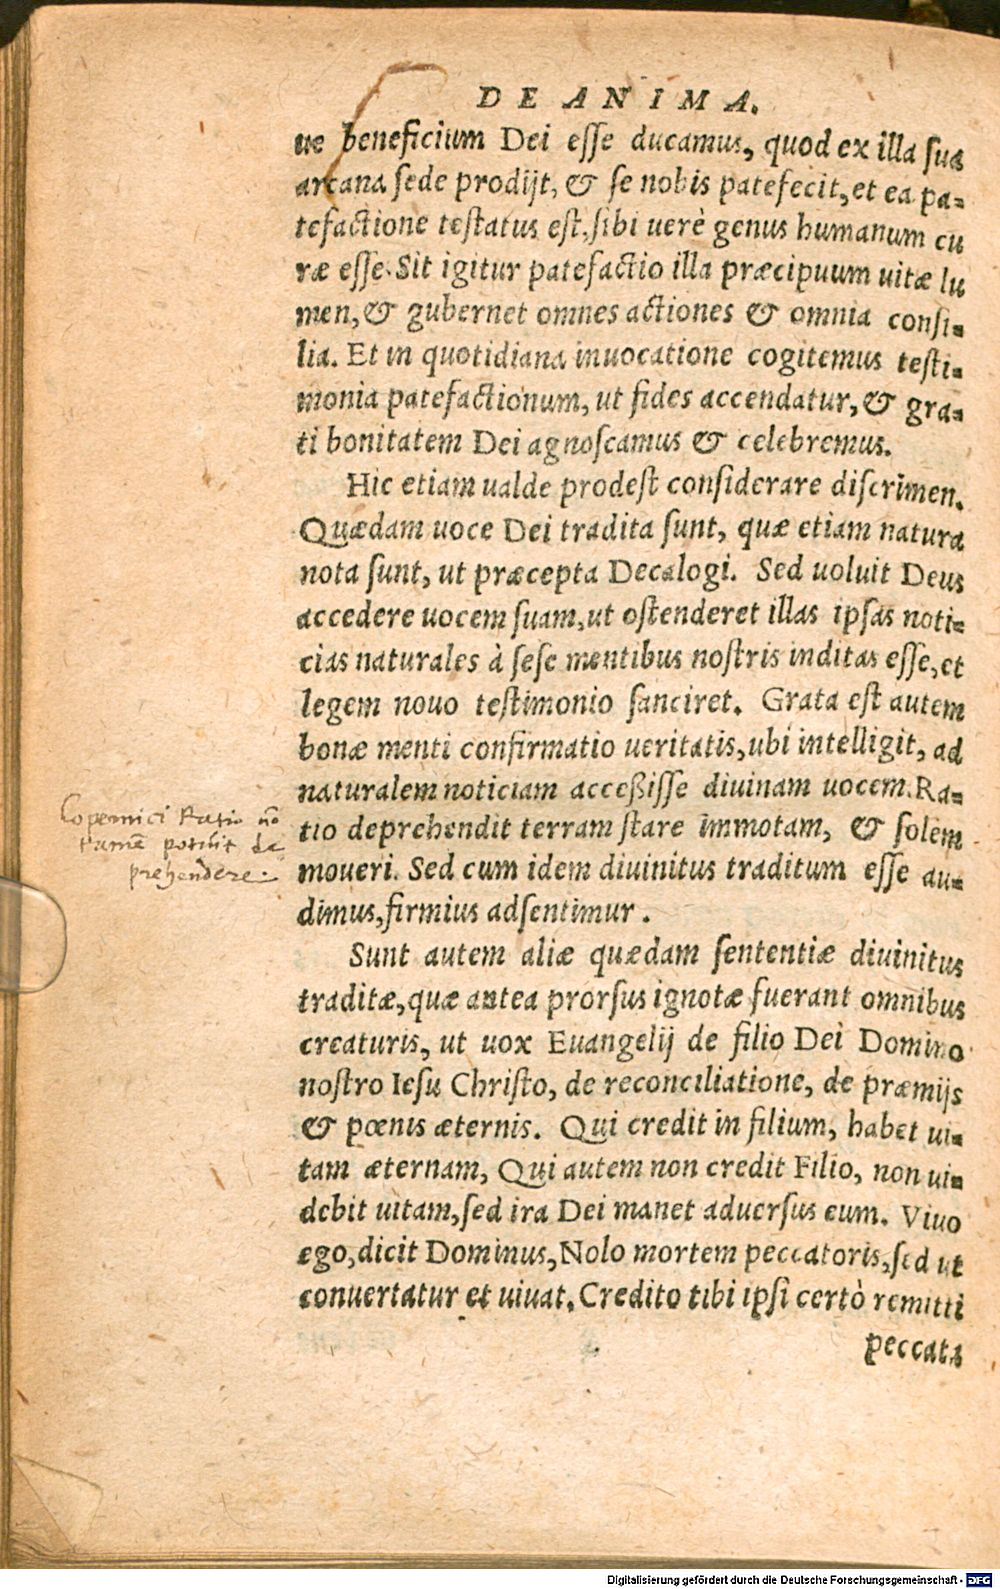 DE ANIMA.
ue beneficium Dei eſſe ducamus, quod ex illa ſua
arcana ſede prodijt, & ſe nobis patefecit, et ea pa-
tefactione teſtatus eſt, ſibi uerè genus humanum cu
ræ eſſe. Sit igitur patefactio illa præcipuum uitæ lu
men, & gubernet omnes actiones & omnia conſi-
lia. Et in quotidiana inuocatione cogitemus teſti-
monia patefactionum, ut fides accendatur, & gra-
ti bonitatem Dei agnoſcamus & celebremus.
Hic etiam ualde prodeſt conſiderare diſcrimen.
Quædam uoce Dei tradita ſunt, quæ etiam natura
nota ſunt, ut præcepta Decalogi. Sed uoluit Deus
accedere uocem ſuam, ut oſtenderet illas ipſas noti-
cias naturales à ſeſe mentibus noſtris inditas eſſe, et
legem nouo teſtimonio ſanciret. Grata eſt autem
bonæ menti confirmatio ueritatis, ubi intelligit, ad
naturalem noticiam acceßiſſe diuinam uocem. Ra-
tio deprehendit terram ſtare immotam, & ſolem
moueri. Sed cum idem diuinitus traditum eſſe au-
dimus, firmius adſentimur.
Copernici Ratio nō
tamē potuit de
prehendere.
Sunt autem aliæ quædam ſententiæ diuinitus
traditæ, quæ antea prorſus ignotæ fuerant omnibus
creaturis, ut uox Euangelij de filio Dei Domino
noſtro Ieſu Chriſto, de reconciliatione, de præmijs
& pœnis æternis. Qui credit in filium, habet ui-
tam æternam, Qui autem non credit Filio, non ui-
debit uitam, ſed ira Dei manet aduerſus eum. Viuo
ego, dicit Dominus, Nolo mortem peccatoris, ſed ut
conuertatur et uiuat. Credito tibi ipſi certò remitti
peccata
Digitalisierung gefördert durch die Deutsche Forschungsgemeinschaft - DFG